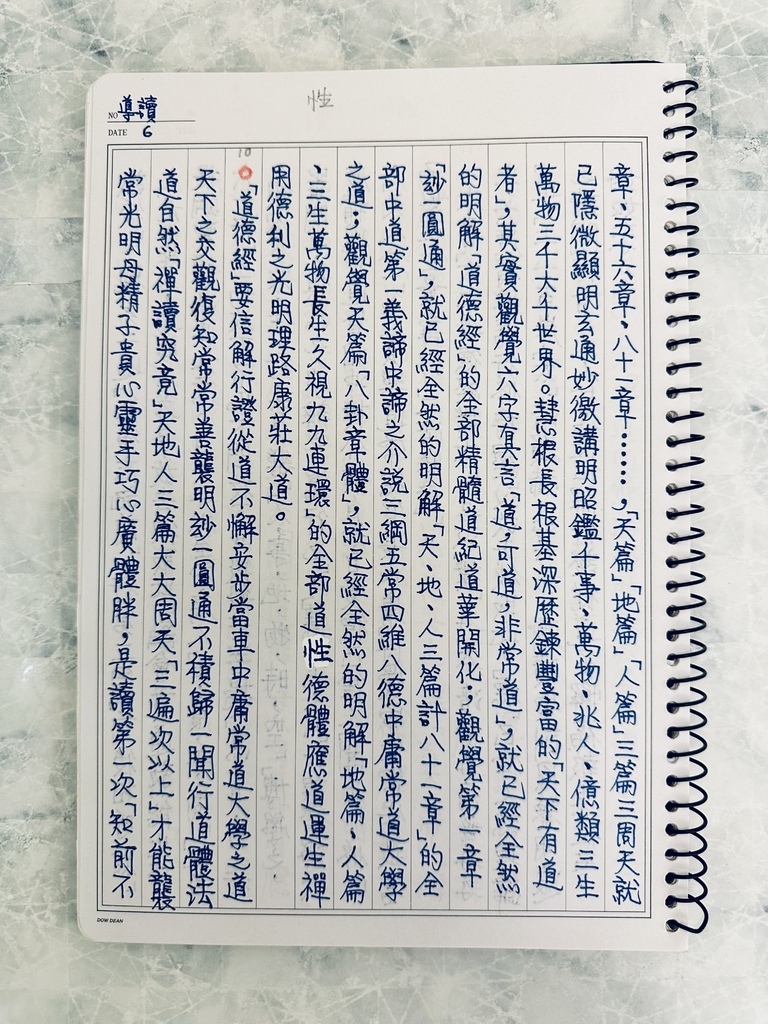 性
NO 導讀
DATE 6
章、五十六章、八十一章……，「天篇」「地篇」「人篇」三篇三周天就
已隱微顯明玄通妙徼講明昭鑑千事、萬物、兆人、億類三生
萬物三千大千世界。慧根長根基深歷鍊豐富的「天下有道
者」，其實觀覺六字真言「道，可道，非常道」，就已經全然
的明解「道德經」的全部精髓道紀道華開化；觀覺第一章
「玅一圓通」，就已經全然的明解「天、地、人三篇計八十一章」的全
部中道第一義諦中諦之介說三綱五常四維八德中庸常道大學
之道；觀覺天篇「八卦章體」，就已經全然的明解「地篇、人篇
、三生萬物長生久視九九連環」的全部道性德體應道運生禪
用德利之光明理路康莊大道。
10
「道德經」要信解行證從道不懈安步當車中庸常道大學之道
天下之交觀復知常常善襲明玅一圓通不積歸一聞行道體法
道自然「禪讀究竟」天地人三篇大大周天「三遍次以上」才能襲
常光明母精子貴心靈手巧心廣體胖，是讀第一次「知前不
DOW DEAN